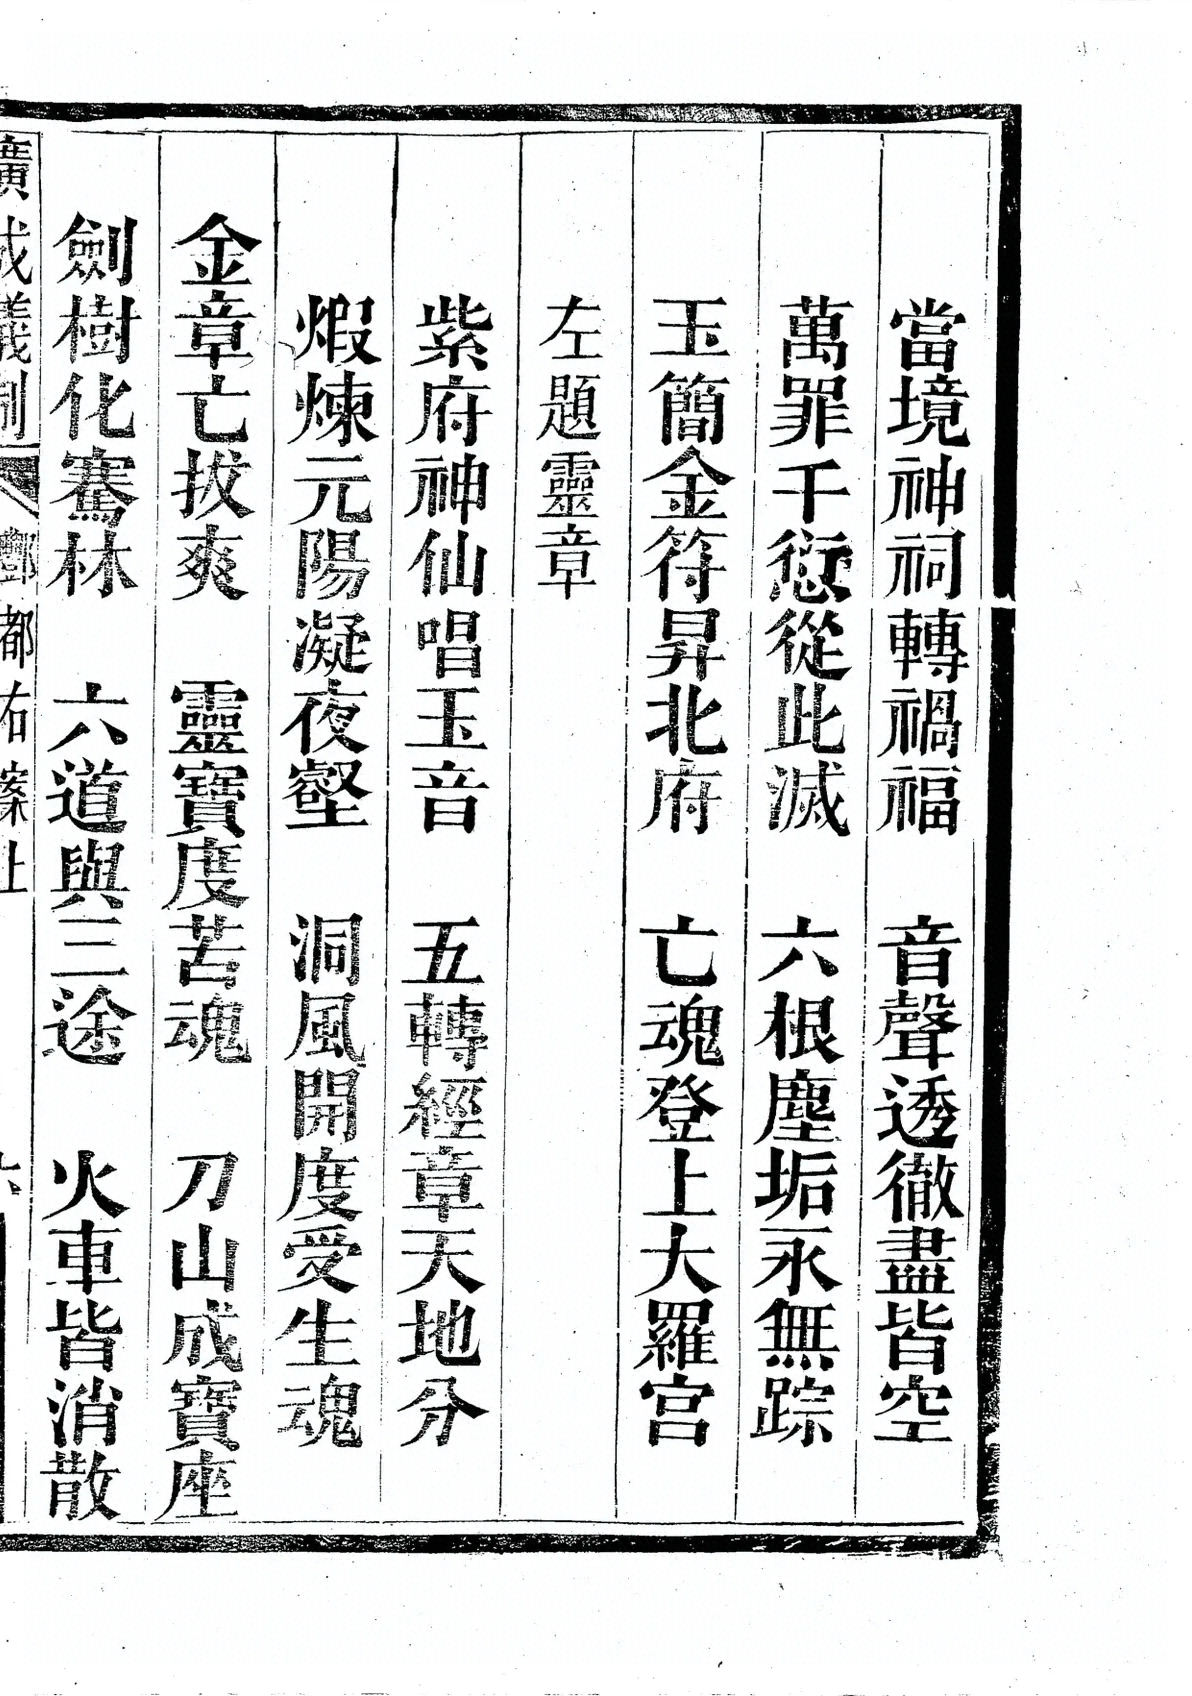 當境神祠轉禍福　音聲透徹盡皆空
萬罪千愆從此滅　六根塵垢永無踪
玉簡金符昇北府　亡魂登上大羅宮
左題靈章
紫府神仙唱玉音　五轉經章天地分
煆煉元陽凝夜壑　洞風開度受生魂
金章亡拔爽　靈寶度苦魂　刀山成寶座
劍樹化騫林　六道與三途　火車皆消散
廣成儀制　酆都右案上　六